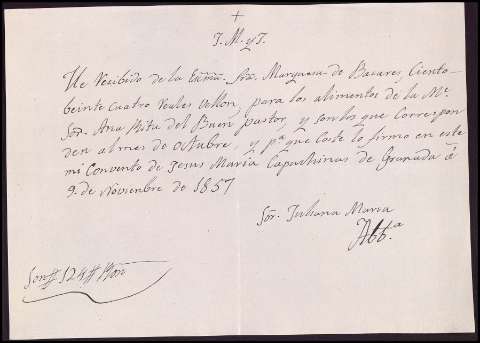 +
J. M. y J.
He Recibido de la Exma. Sra. Marquesa de Bacares, Ciento
beinte cuatro reales vellon, para los alimentos de la Me.
Sor. Ana Rita del Buen pastor, y son los que Corres pon
den al mes de Octubre, y pa. que Coste lo firmo en este
mi Convento de Jesus Maria Capuchinas de Granada á
9. de Noviembre de 1857
Sor. Juliana Maria
Abb.a
Son # 124 # Rvon